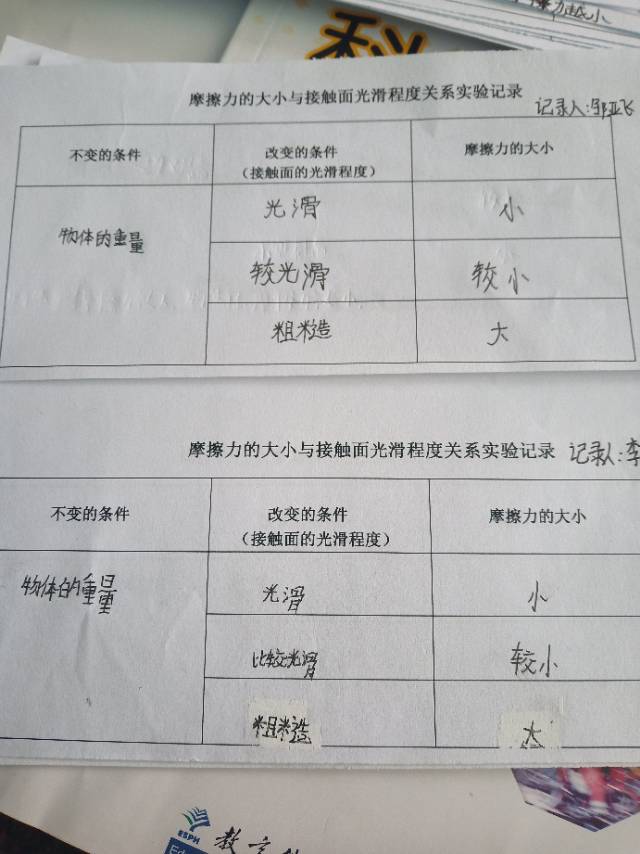 摩擦力的大小与接触面光滑程度关系实验记录 记录人:邹亚飞
不变的条件 改变的条件 摩擦力的大小
(接触面的光滑程度)
物体的重量 光滑 小
较光滑 较小
粗糙 大
摩擦力的大小与接触面光滑程度关系实验记录 记录人:李
不变的条件 改变的条件 摩擦力的大小
(接触面的光滑程度)
物体的重量 光滑 小
比较光滑 较小
粗糙 大
ESPH 教育